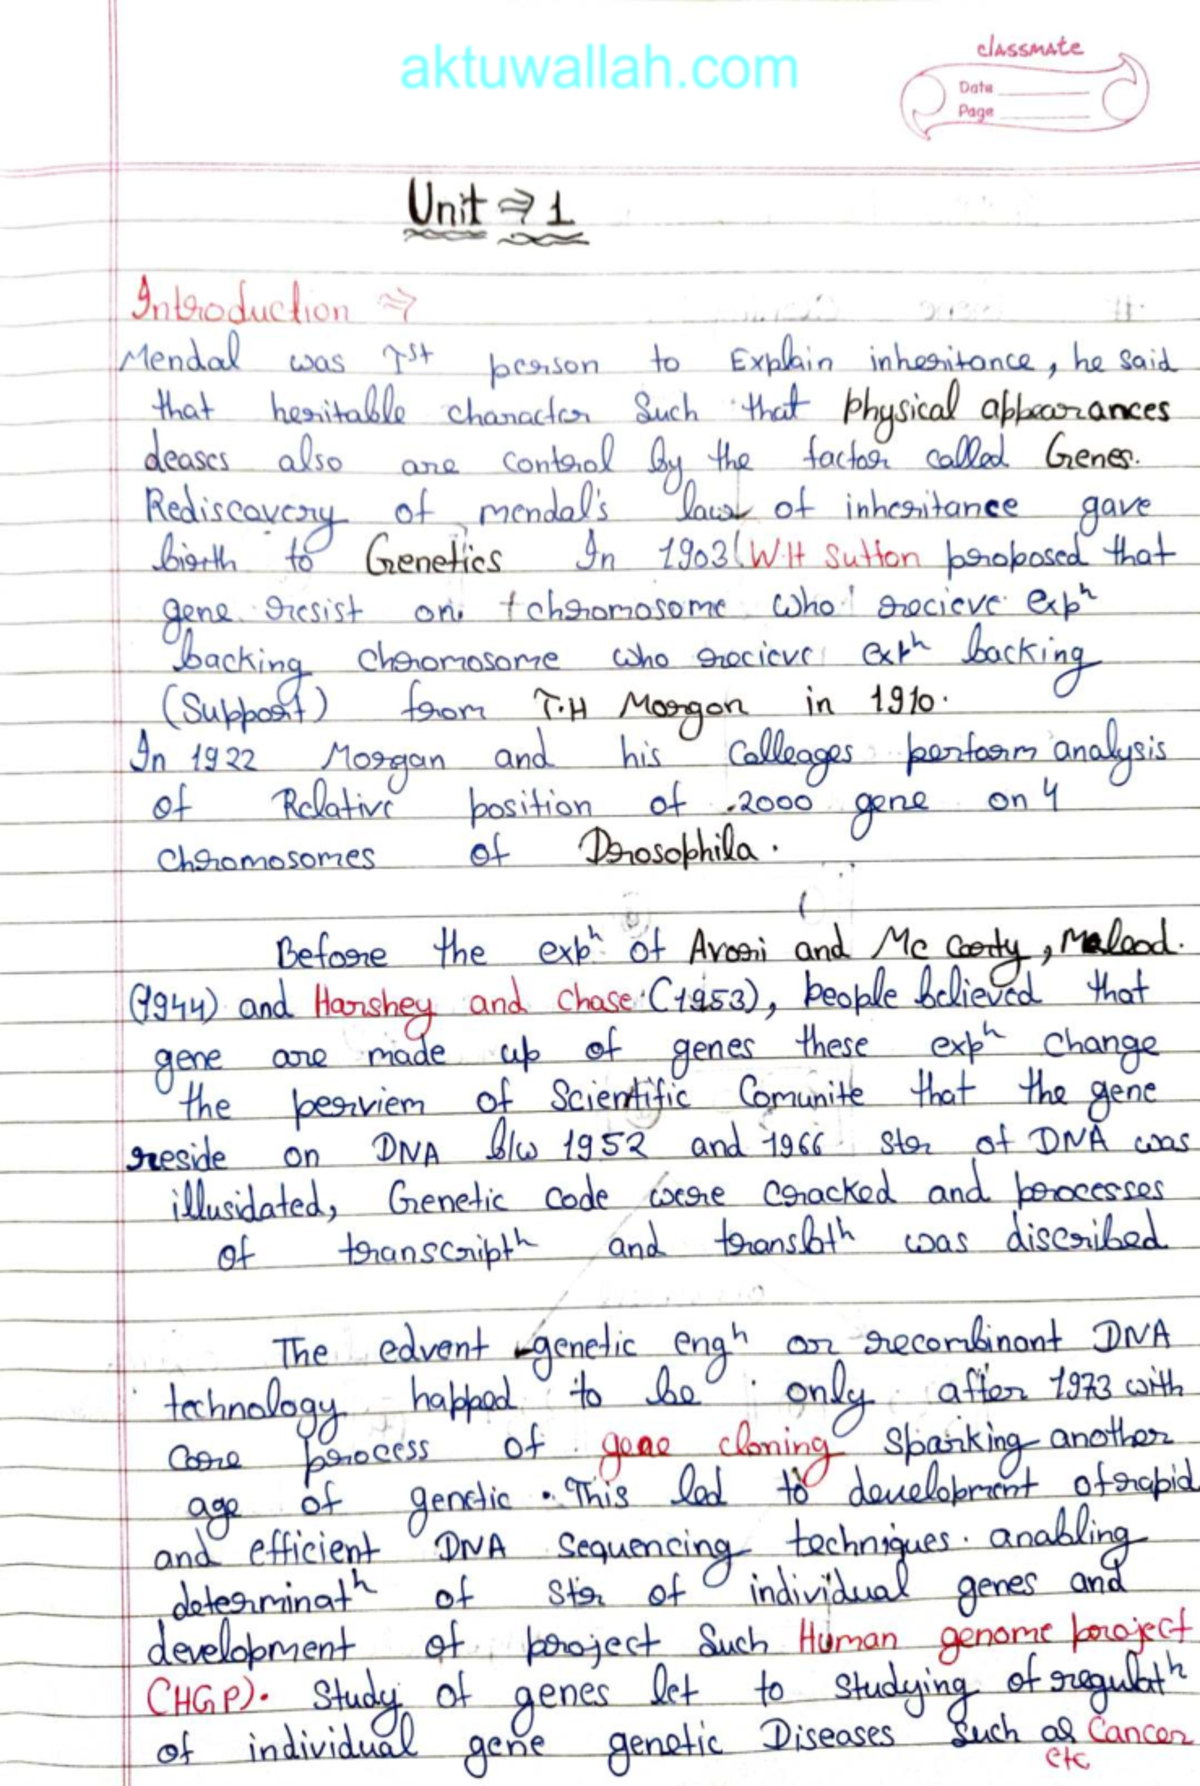 aktuwallah.com
classmate
Date
Page
Unit ⇒ 1
Introduction ⇒
Mendal was 1st person to Explain inheritance, he said
that heritable character Such that physical appearances
deases also are control by the factor called Genes.
Rediscavery of mendal's law of inheritance gave
birth to Genetics In 1903 (W.H Sutton proposed that
gene resist on chromosome who recieve expʰ
backing chromosome who recieve expʰ backing
(Support) from T.H Morgan in 1910.
In 1922 Morgan and his Colleages perform analysis
of Relative position of 2000 gene on 4
chromosomes of Drosophila.
Before the expʰ of Avori and Mc Carty, Mcleod.
(1944) and Harshey and Chase (1953), people believed that
gene are made up of genes these expʰ change
the perviem of Scientific Comunite that the gene
reside on DNA b/w 1952 and 1966 str of DNA was
illusidated, Genetic code were cracked and processes
of transcriptʰ and translatʰ was discribed
The edvent genetic engʰ or recombinant DNA
technology happed to be only after 1973 with
core process of gene cloning sparking another
age of genetic. This led to development of rapid
and efficient DNA sequencing techniques. anabling
determinatʰ of str of individual genes and
development of project such Human genome project
(HGP). Study of genes let to studying of regulatʰ
of individual gene genetic Diseases such as Cancer
etc